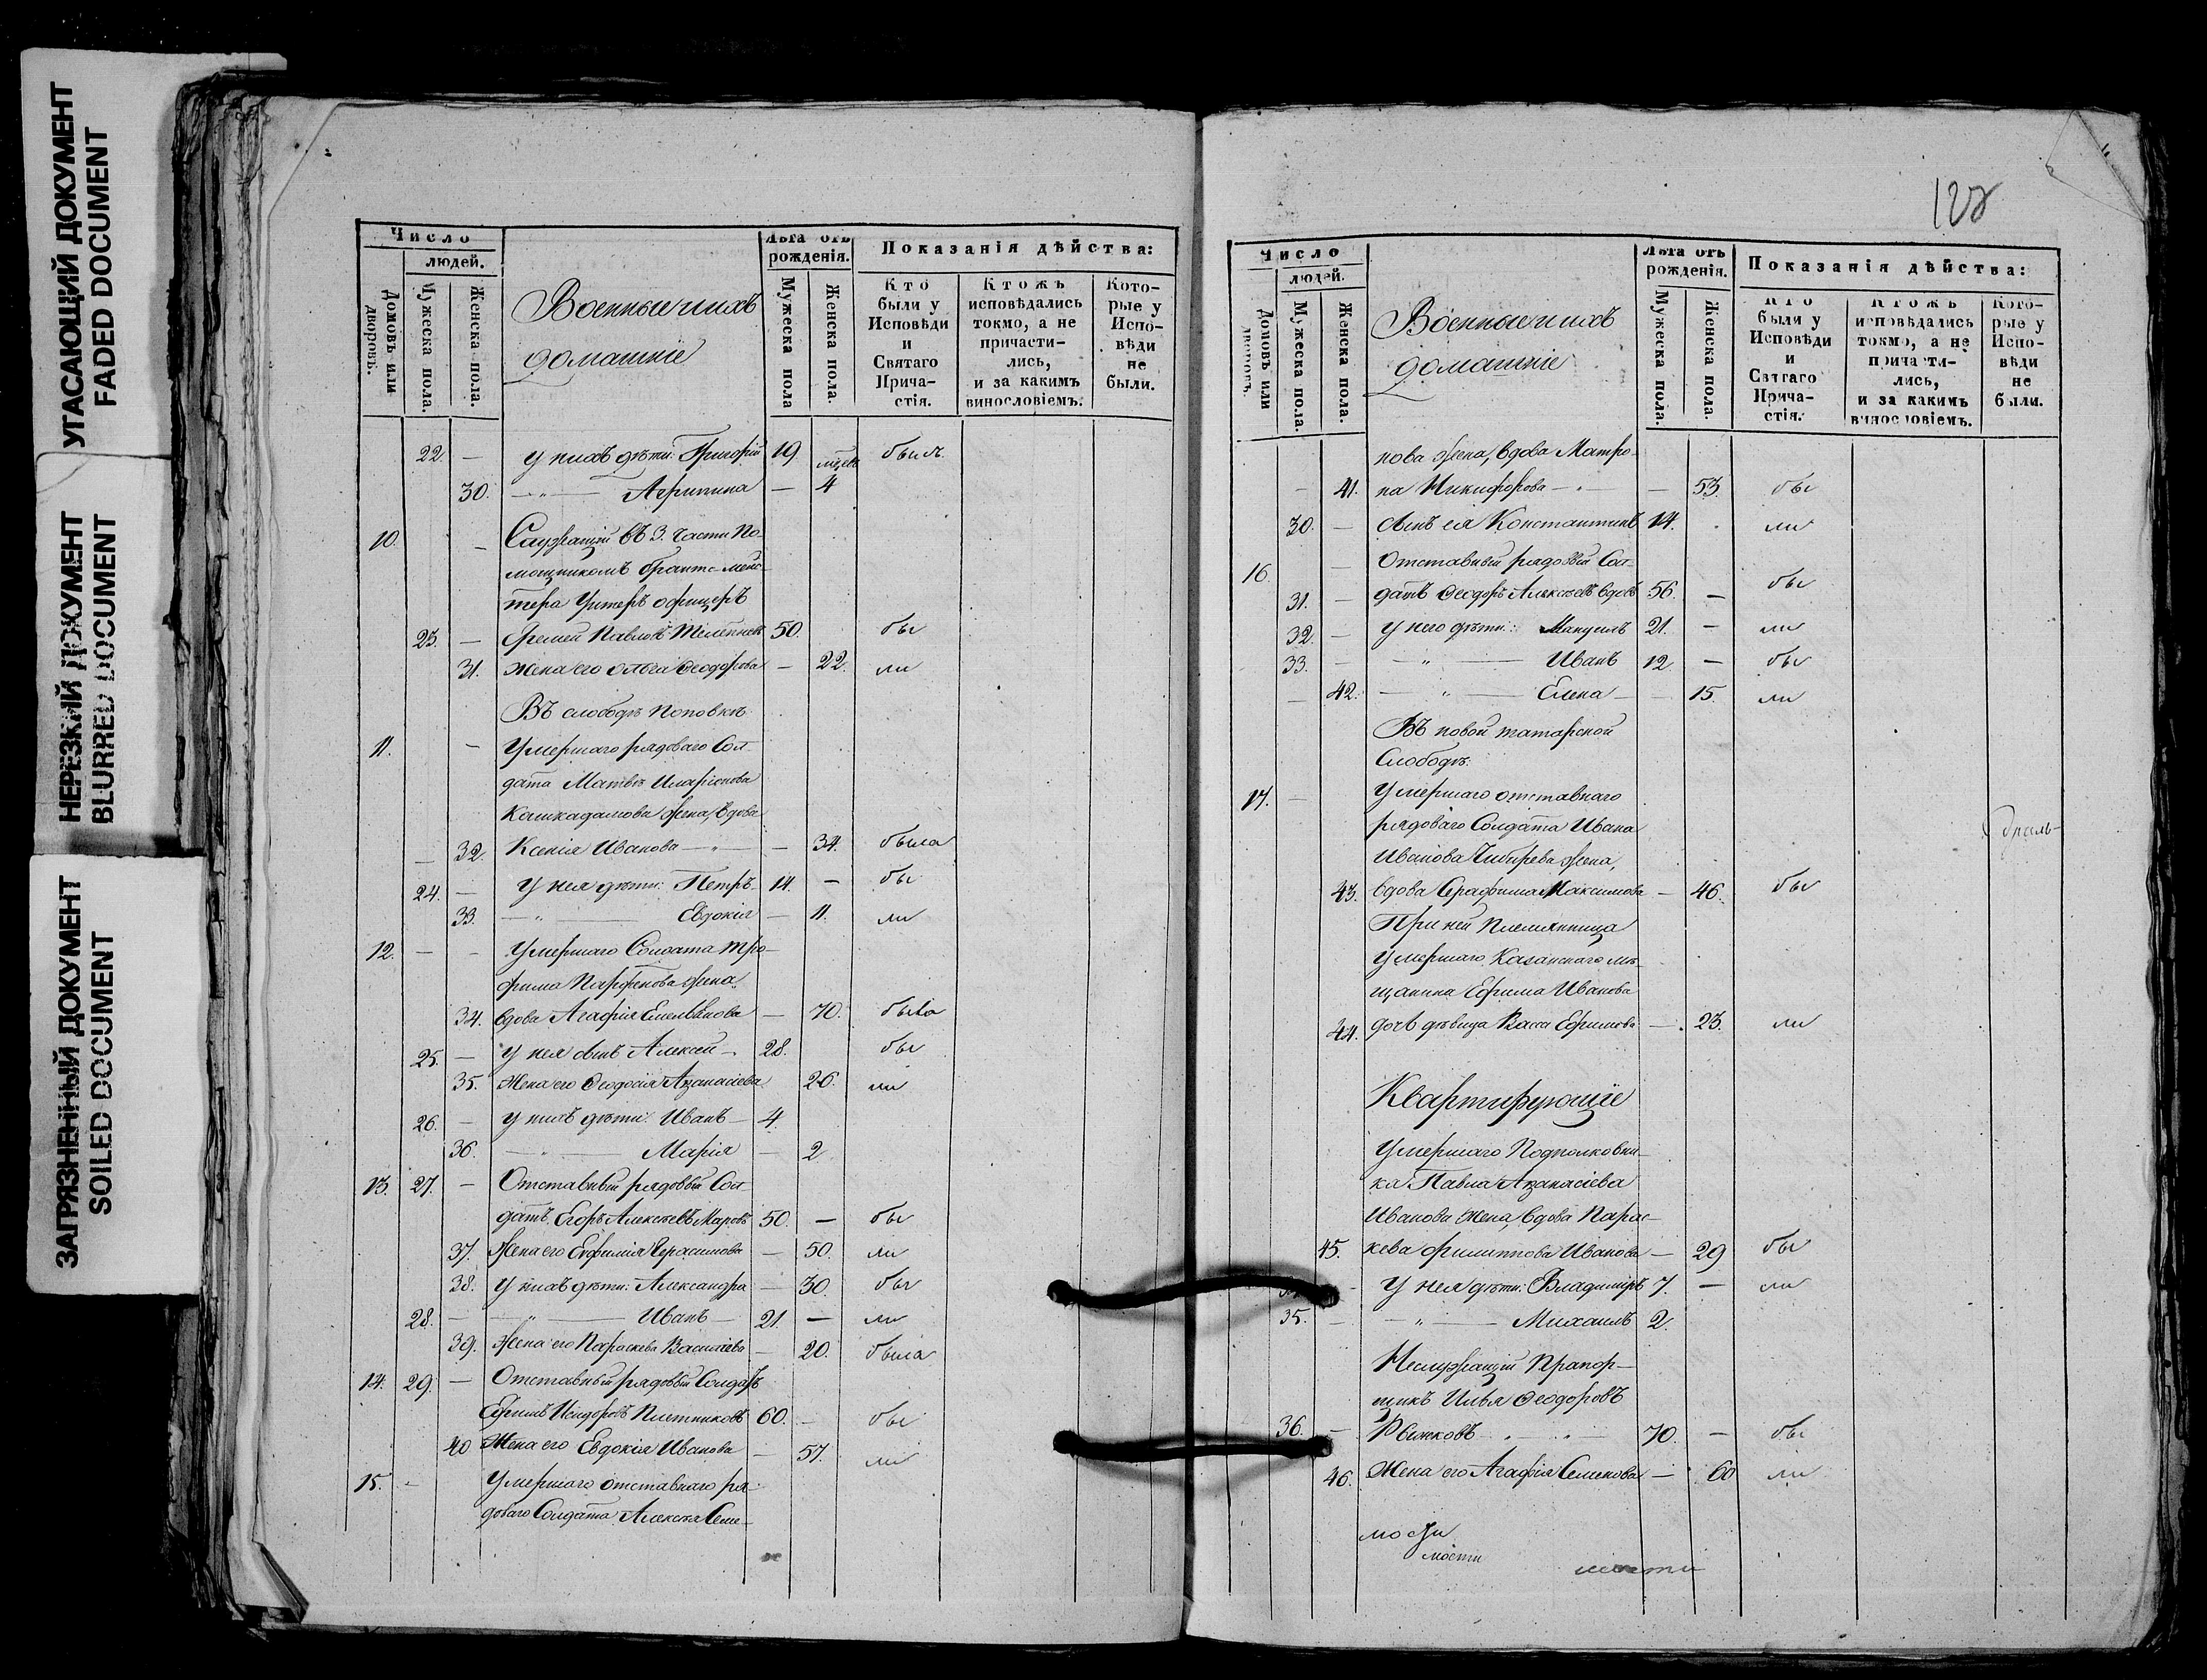 УГАСАЮЩИЙ ДОКУМЕНТ
FADED DOCUMENT
НЕРЕЗКИЙ ДОКУМЕНТ
BLURRED DOCUMENT
ЗАГРЯЗНЕННЫЙ ДОКУМЕНТ
SOILED DOCUMENT
Число
людей.
Домовъ или дворовъ.
Мужеска пола.
Женска пола.
Военные и ихъ
домашніе
Лѣта отъ рожденія.
Мужеска пола
Женска пола.
Показанія дѣйства:
Кто были у Исповѣди и Святаго Прича-стія.
Ктожъ исповѣдались токмо, а не причасти-лись, и за какимъ винословіемъ.
Кото-рые у Испо-вѣди не были.
22. — у нихъ дѣти: Григорій 19 былъ
30. — „ — Агрипина — 4
10. — Служащій въ 3. части По-
мощникомъ брантъ-мейс-
тера Унтеръ офицеръ
23. — Павловъ 50. бы
31. Жена его Ольга Ѳеодорова — 22. ли
Въ слободѣ Поповкѣ
11. — Умершаго рядоваго Сол-
дата Матвѣя Иларіонова
Кошкадамова жена, вдова
— 32. Ксенія Иванова — „ — — 34. была
24. — У нея дѣти: Петръ 14. — бы
33. — „ — Евдокія — 11. ли
12. — — Умершаго Солдата Тро-
фима Парфенова жена
34. вдова Агафія Емельянова — 70. была
25. — У нея сынъ Алексѣй — 28. бы
35. Жена его Ѳеодосія Аѳанасіева 26. ли
26. — У нихъ дѣти: Иванъ — 4.
36. — „ — Марія — 2
13. 27. — Отставный рядовый Сол-
датъ Егоръ Алексѣевъ Маровъ 50. — бы
37. Жена его Евфимія Герасимова — 50. ли
38. У нихъ дѣти: Александра — 30. бы
28. — — „ — Иванъ — 21. — ли
39. Жена его Параскева Васильева — 20. была
14. 29. — Отставный рядовый Солдатъ
Ефимъ Исидоровъ Плетниковъ 60. — бы
40. Жена его Евдокія Иванова — 57. ли
15. — Умершаго отставнаго ря-
доваго Солдата Алексѣя Семе-
128
Число
людей.
Домовъ или дворовъ.
Мужеска пола.
Женска пола.
Военные и ихъ
домашніе
Лѣта отъ рожденія.
Мужеска пола.
Женска пола.
Показанія дѣйства:
Кто были у Исповѣди и Святаго Прича-стія.
Ктожъ исповѣдались токмо, а не причасти-лись, и за какимъ винословіемъ.
Кото-рые у Испо-вѣди не были.
нова жена, вдова Матро-
— 41. на Никифорова — „ — — 53. бы
30. — сынъ ея Константинъ 14. ли
16. — Отставный рядовый Сол-
31. — датъ Ѳеодоръ Алексѣевъ вдовъ 56. — бы
32. — у него дѣти: Мануилъ 21. — ли
33. — — „ — Иванъ 12. — бы
— 42. — „ — Елена — — 15. ли
Въ новой татарской
Слободѣ.
17. — Умершаго отставнаго
рядоваго Солдата Ивана
Иванова Чибирева жена,
43. вдова Серафима Максимова — 46. бы
При ней Племянница
Умершаго Казанскаго мѣ-
щанина Ефима Иванова
44. дочь дѣвица Васса Ефимова — 23. ли
Квартирующіе
Умершаго Подполковни-
ка Павла Аѳанасіева
Иванова жена, вдова Парас-
45. кева Филиппова Иванова — 29 бы
— У нея дѣти: Владиміръ 7. — ли
35. — — „ — Михаилъ 2.
Неслужащій Прапор-
щикъ Илья Ѳеодоровъ
36. — Рыжковъ — „ — „ — 70. — бы
46. Жена его Агафія Семенова — 60 ли
мости